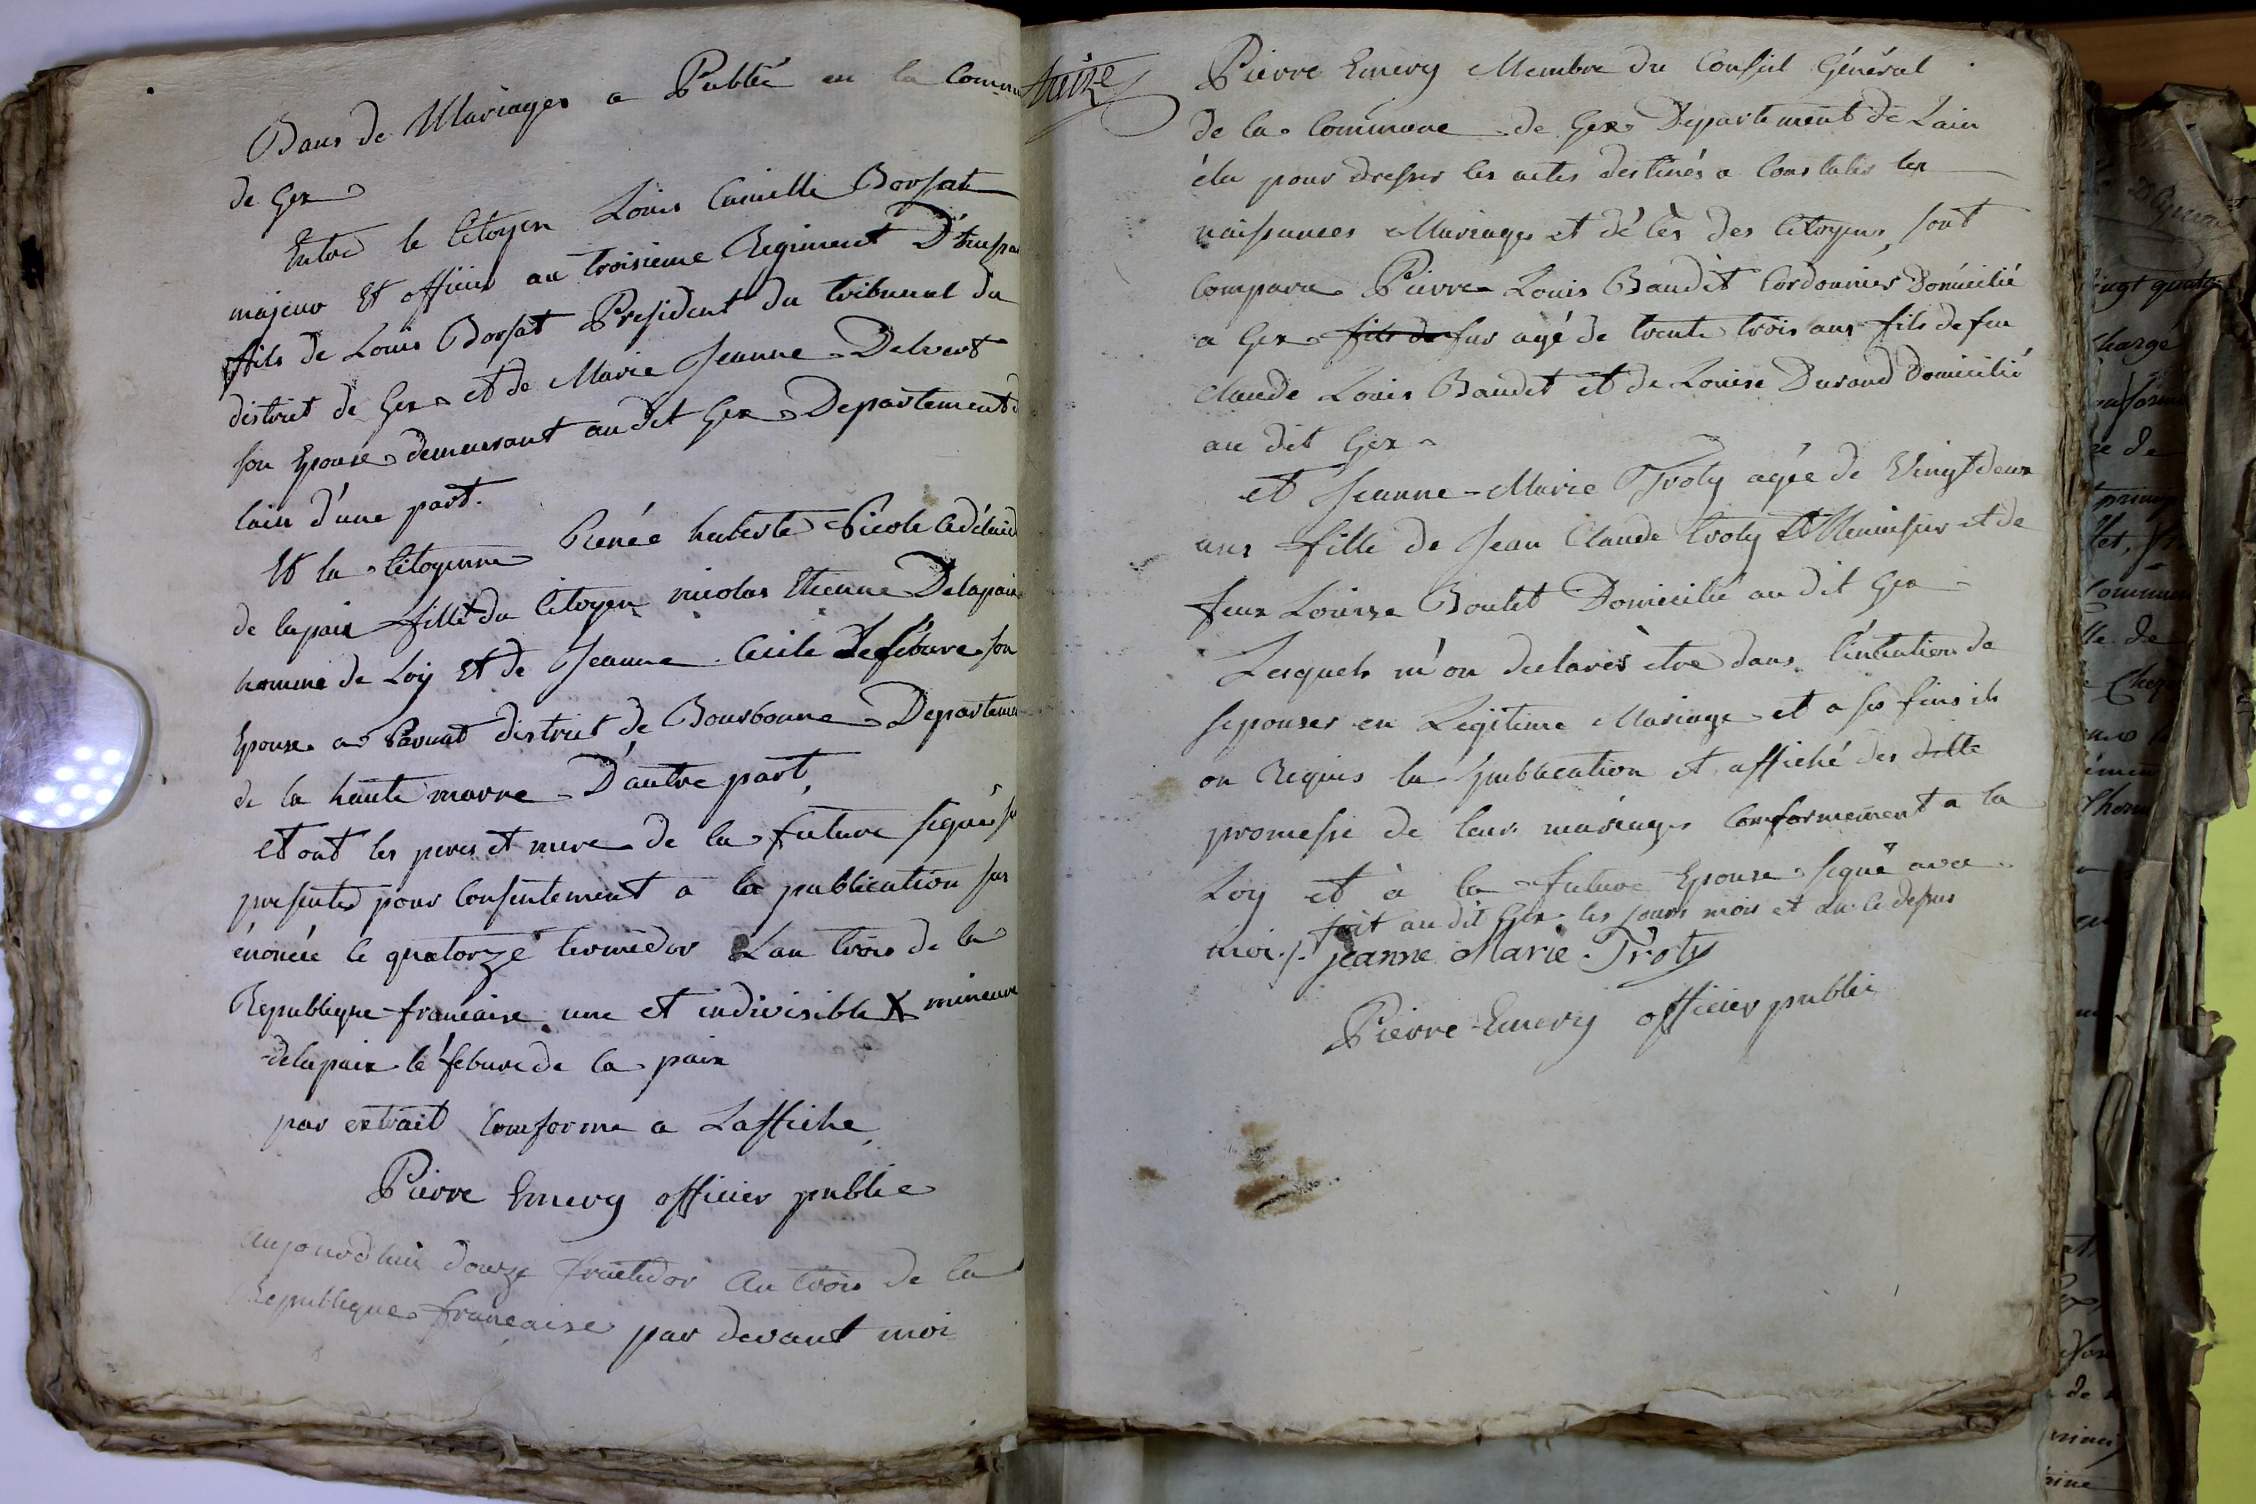 Bans de Mariages a Publié en la Commu
de Gex
Entre le Citoyen Louis Camille Borsat
majeur Et officier au troisieme Regiment D'
fils de Louis Borsat President du tribunal du
district de Gex et de Marie Jeanne Delvert
son Epouse demeurant au dit Gex Departement d
lain d'une part.
Et la Citoyenne Renée huberte Nicole Adelaid
de lapaix fille du Citoyen nicolas Etienne Delapaix
homme de Loy Et de Jeanne Cecile Lefébure son
Epouse a district de Bourbonne Departemen
de la haute marne D'autre part,
et ont les peres et mere de la future signés
presente pour Consentement a la publication sus
énoncée le quatorze termidor Lan trois de la
Republique francaise une et indivisible X mineure
delapaix lé febure de la paix
par extrait Comforme a Laffiche
Pierre Emery officier public
aujourd'huis douze fructidor an trois de la
Republique francaise par devant moi
treize
Pierre Emery Membre du Conseil Général
de la Commune de Gex Departement de Lain
élu pour dresser les actes destinés a Constater les
naissances Mariages et décès des Citoyens, sont
Comparu Pierre Louis Baudet Cordonnier Domicilié
a Gex fils de feu agé de trente trois ans fils de feu
Claude Louis Baudet et de Louise Durand Domicilié
au dit Gex
et Jeanne-Marie Troty agée de Vingt deux
ans fille de Jean Claude troty Menuisier et de
feue Louize Boulet Domicilié au dit Gex
Lesquels m'on declarès etre dans l'intention de
sepouser en Legitime Mariage et a ses fins ils
on Requis la publication et affiché des ditte
promesse de leur mariages Comformement a la
Loy et à la future Epouse signé avec
fait au dit Gex les jours mois et an ci depus
moi ./. jeanne Marie Troty
Pierre Emery officier public